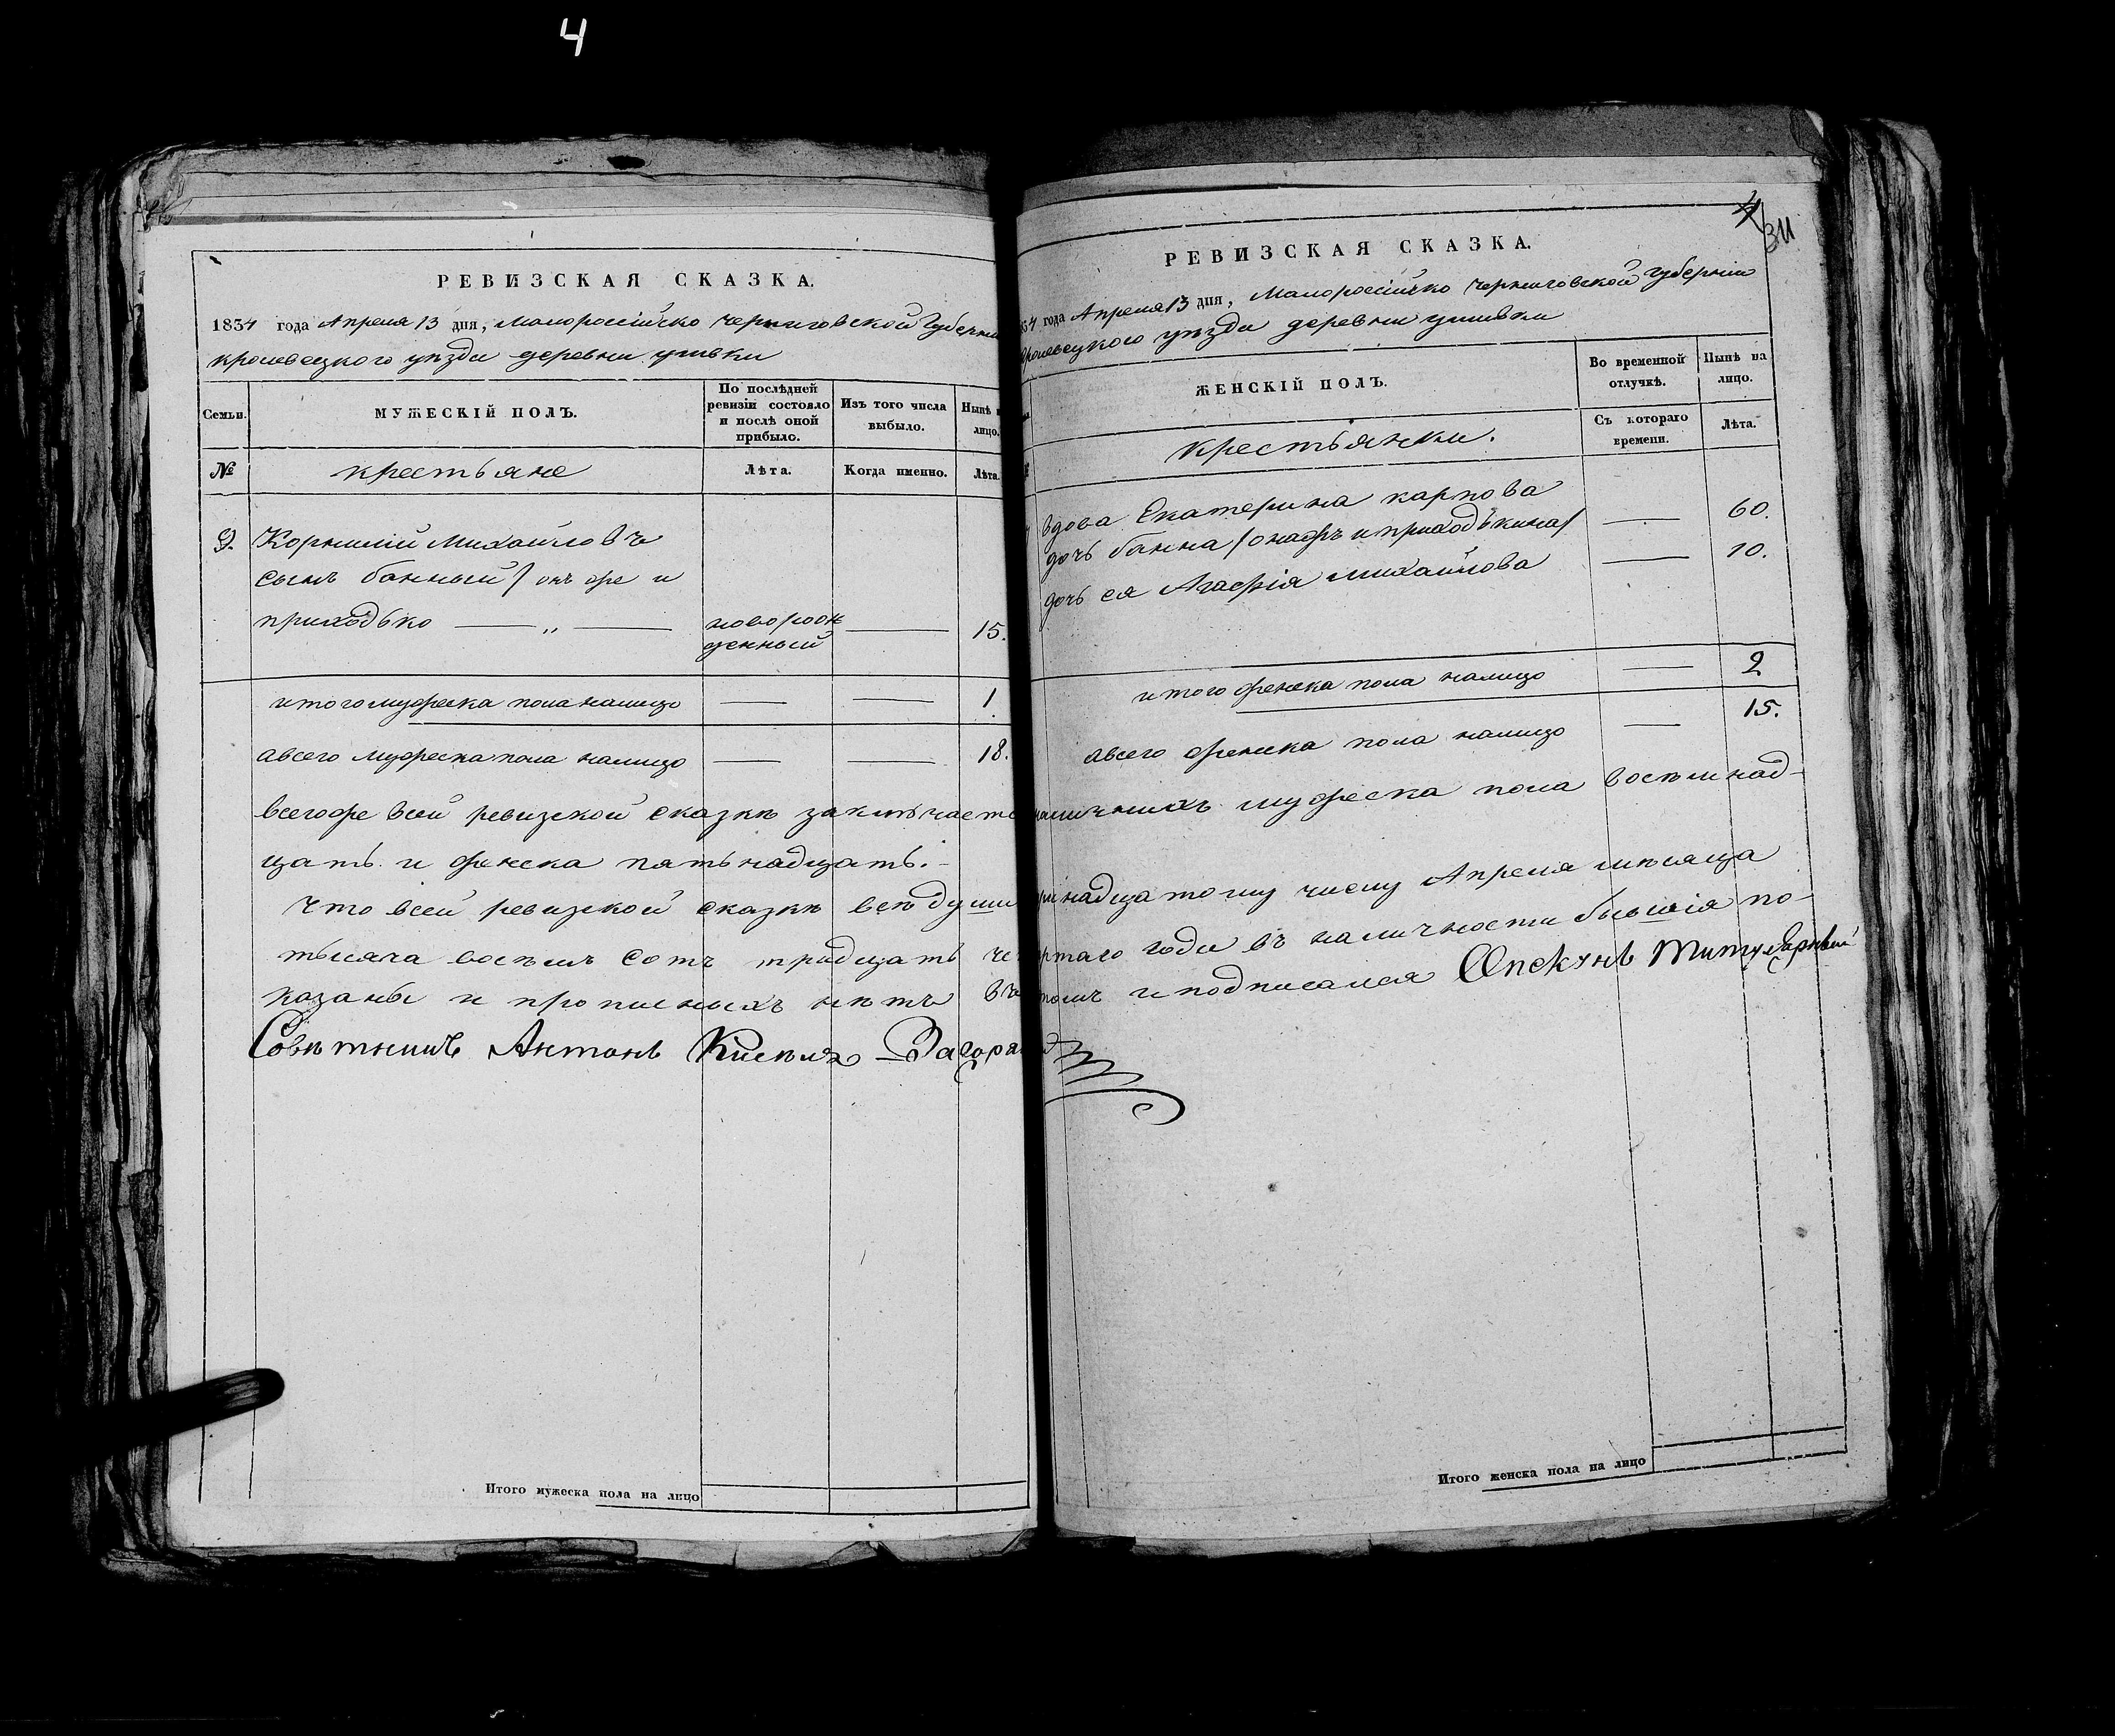 4
РЕВИЗСКАЯ СКАЗКА.
1834 года Апреля 13 дня, Малороссійско Черниговской Губерни
кролевецкого уѣзда деревни
Семьи.
МУЖЕСКІЙ ПОЛЪ.
По послѣдней ревизіи состояло и послѣ оной прибыло.
Изъ того числа выбыло.
Нынѣ н лицо.
№
крестьяне
Лѣта.
Когда именно.
Лѣта.
9.
Корнилій Михайловъ
сынъ банный / онъ же и
приходько — „ —
новорож
денный
—
15.
итого мужеска пола налицо — — 1
авсего мужеска пола налицо — — 18.
всегоже всей ревизской сказкѣ заключаетс
цать и женска пятьнадцать.
Что всей ревизкой сказкѣ всѣ души
тысяча восѣмъ сотъ тридцать че
казаны и прописныхъ нѣтъ въ
Совѣтникъ Антонъ
4
311
РЕВИЗСКАЯ СКАЗКА.
34 года Апреля 13 дня, Малороссійско Черниговской Губерніи
кролевецкого уѣзда деревни
ЖЕНСКІЙ ПОЛЪ.
Во временной отлучкѣ.
Нынѣ на лицо.
крестьянки.
Съ котораго времени.
Лѣта.
вдова Екатерина карпова
дочь банна / онажъ и приходькина / — 60.
дочь ея Агафія михайлова — 10.
итого женска пола налицо — 2
авсего женска пола налицо — 15.
наличныхъ мужеска пола восѣмнад-
надцатому числу Апреля мѣсяца
ртаго года въ наличности бывшія по-
томъ и подписался Опекунъ Титулярный
Итого мужеска пола на лицо
Итого женска пола на лицо